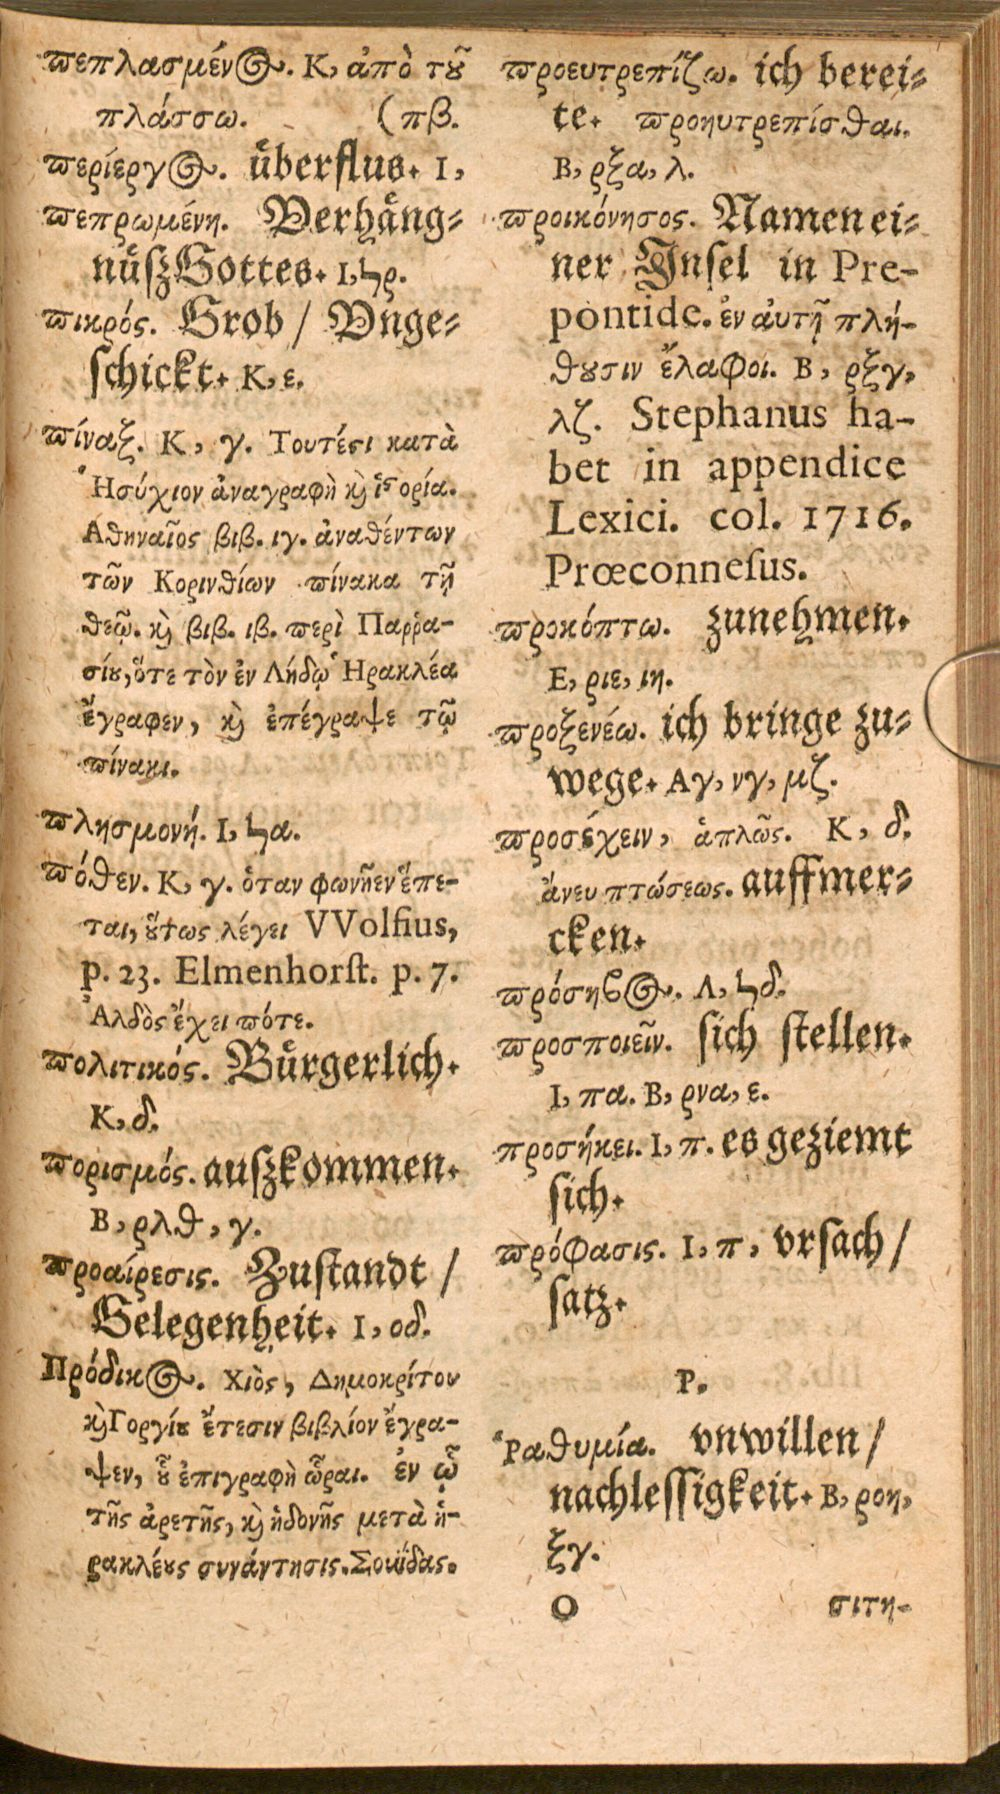 πεπλασμένος. Κ, ἀπὸ τοῦ
πλάσσω. (πβ.
περίεργος. uͤberflus. Ι,
πεπρωμένη. Verhaͤng⸗
nuͤſz Gottes. Ι, ϟρ.
πικρός. Grob / Vnge⸗
ſchickt. Κ, ε.
πίναξ. Κ, γ. Τουτέςι κατὰ
Ἡσύχιον ἀναγραφὴ κὶ ἱςορία.
Αθηναῖος βιβ. ιγ. ἀναθέντων
τῶν Κορινθίων πίνακα τῇ
θεῷ. κὶ βιβ. ιβ. περὶ Παῤῥα-
σίου, ὅτε τὸν ἐν Λήδῳ Ἡρακλέα
ἔγραφεν, κὶ ἐπέγραψε τῷ
πίνακι.
πλησμονή. Ι, ϟα.
πόθεν. Κ, γ. ὁταν φωνῆεν ἕπε-
ται, οὕτως λέγει VVolfius,
p. 23. Elmenhorſt. p. 7.
Ἀλδὸς ἔχει πότε.
πολιτικός. Buͤrgerlich.
Κ, δ.
πορισμός. auſzkommen.
Β, ρλθ, γ.
προαίρεσις. Zuſtandt /
Gelegenheit. Ι, οδ.
Πρόδικος. Χιὸς, Δημοκρίτου
κὶ Γοργίου ἔτεσιν βιβλίον ἔγρα-
ψεν, οὗ ἐπιγραφὴ ὧραι. ἐν ᾧ
τῆς ἀρετῆς, κὶ ἡδονῆς μετὰ ἡ-
ρακλέους συνάντησις. Σουΐδας.
προευτρεπίζω. ich berei⸗
te. προηυτρεπίσθαι.
Β, ρξα, λ.
προικόνησος. Namen ei⸗
ner Jnſel in Pre-
pontide. ἐν ἀυτῇ πλή-
θουσιν ἔλαφοι. Β, ρξγ,
λζ. Stephanus ha-
bet in appendice
Lexici. col. 1716.
Prœconneſus.
προκόπτω. zunehmen.
Ε, ριε, ιη.
προξενέω. ich bringe zu⸗
wege. Αγ, νγ, μζ.
προσέχειν, ἁπλῶς. Κ, δ.
ἄνευ πτώσεως. auffmer⸗
cken.
πρόσηβος. Λ, ϟδ.
προσποιεῖν. ſich ſtellen.
Ι, πα. Β, ρνα, ε.
προσήκει. Ι, π. es geziemt
ſich.
πρόφασις. Ι, π, vrſach /
ſatz.
Ρ.
Ῥαθυμία. vnwillen /
nachleſſigkeit. Β, ροη,
ξγ.
O σιτη-